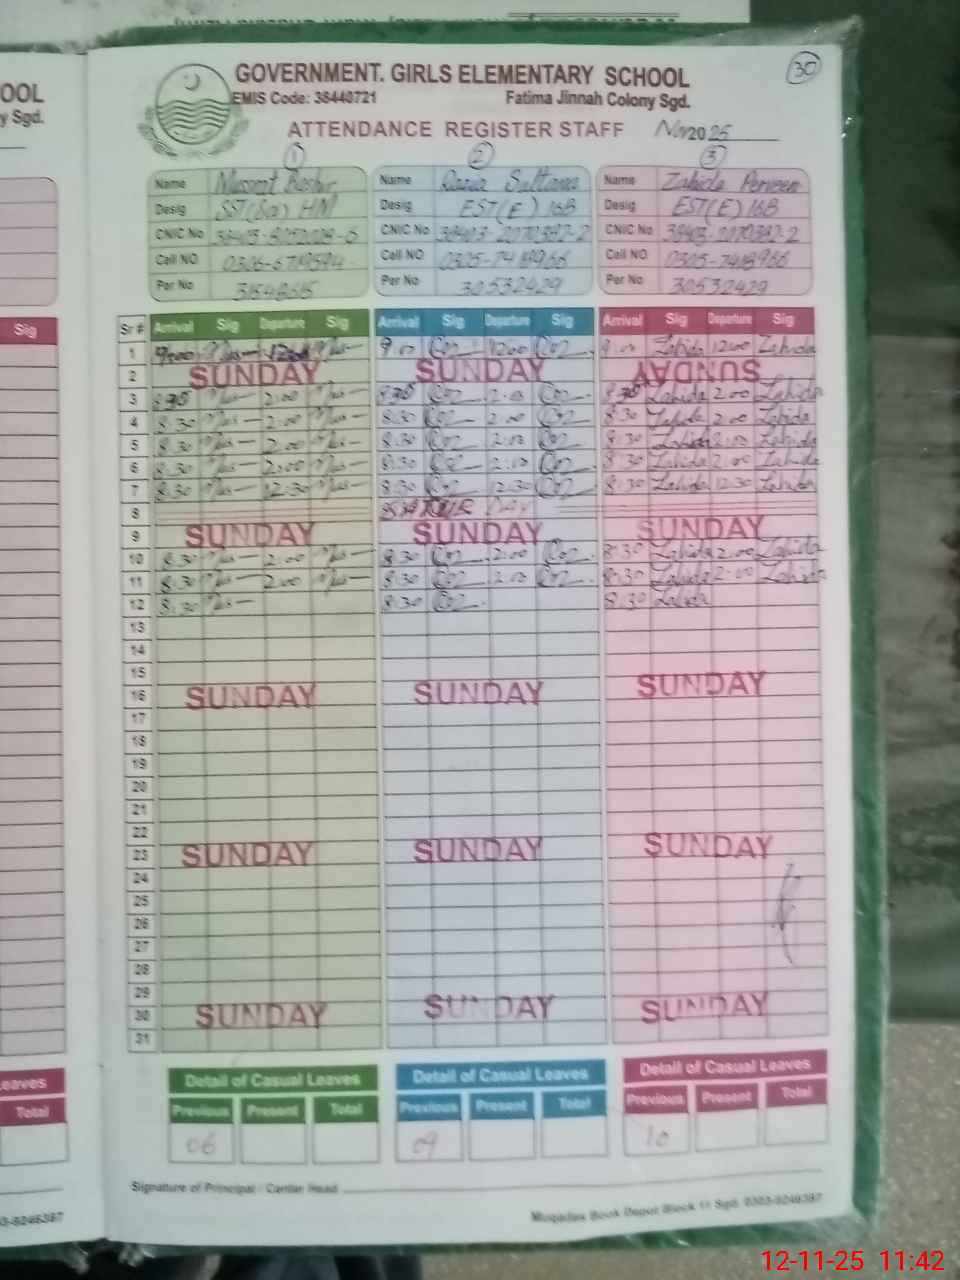 OOL
y Sgd.
Sig
eaves
Total
3-9246397
30
GOVERNMENT. GIRLS ELEMENTARY SCHOOL
EMIS Code: 38440721
Fatima Jinnah Colony Sgd.
ATTENDANCE REGISTER STAFF Nov 2025
1 2 3
Name Name Razia Sultana Name Zahida Perveen
Desig SST(Sci) HM Desig EST(E) 16B Desig EST(E) 16B
CNIC No CNIC No 38403-2070392-2 CNIC No 38403-2070392-2
Cell NO Cell NO 0305-7418966 Cell NO 0305-7418966
Per No Per No 30532429 Per No 30532429
Sr # Arrival Sig Departure Sig Arrival Sig Departure Sig Arrival Sig Departure Sig
1 9:00 12:00 9:00 12:00 9:00 Zahida 12:00 Zahida
2 SUNDAY SUNDAY SUNDAY
3 8:30 2:00 8:30 2:00 8:30 Zahida 2:00 Zahida
4 8:30 2:00 8:30 2:00 8:30 Zahida 2:00 Zahida
5 8:30 2:00 8:30 2:00 8:30 Zahida 2:00 Zahida
6 8:30 2:00 8:30 2:00 8:30 Zahida 2:00 Zahida
7 8:30 12:30 8:30 12:30 8:30 Zahida 12:30 Zahida
8 DAY
9 SUNDAY SUNDAY SUNDAY
10 8:30 2:00 8:30 2:00 8:30 Zahida 2:00 Zahida
11 8:30 2:00 8:30 2:00 8:30 Zahida 2:00 Zahida
12 8:30 8:30 8:30 Zahida
13
14
15
16 SUNDAY SUNDAY SUNDAY
17
18
19
20
21
22
23 SUNDAY SUNDAY SUNDAY
24
25
26
27
28
29
30 SUNDAY SUNDAY SUNDAY
31
Detail of Casual Leaves Detail of Casual Leaves Detail of Casual Leaves
Previous Present Total Previous Present Total Previous Present Total
06 09 10
Signature of Principal / Center Head
Muqadas Book Depot Block 11 Sgd. 0303-9246397
12-11-25 11:42